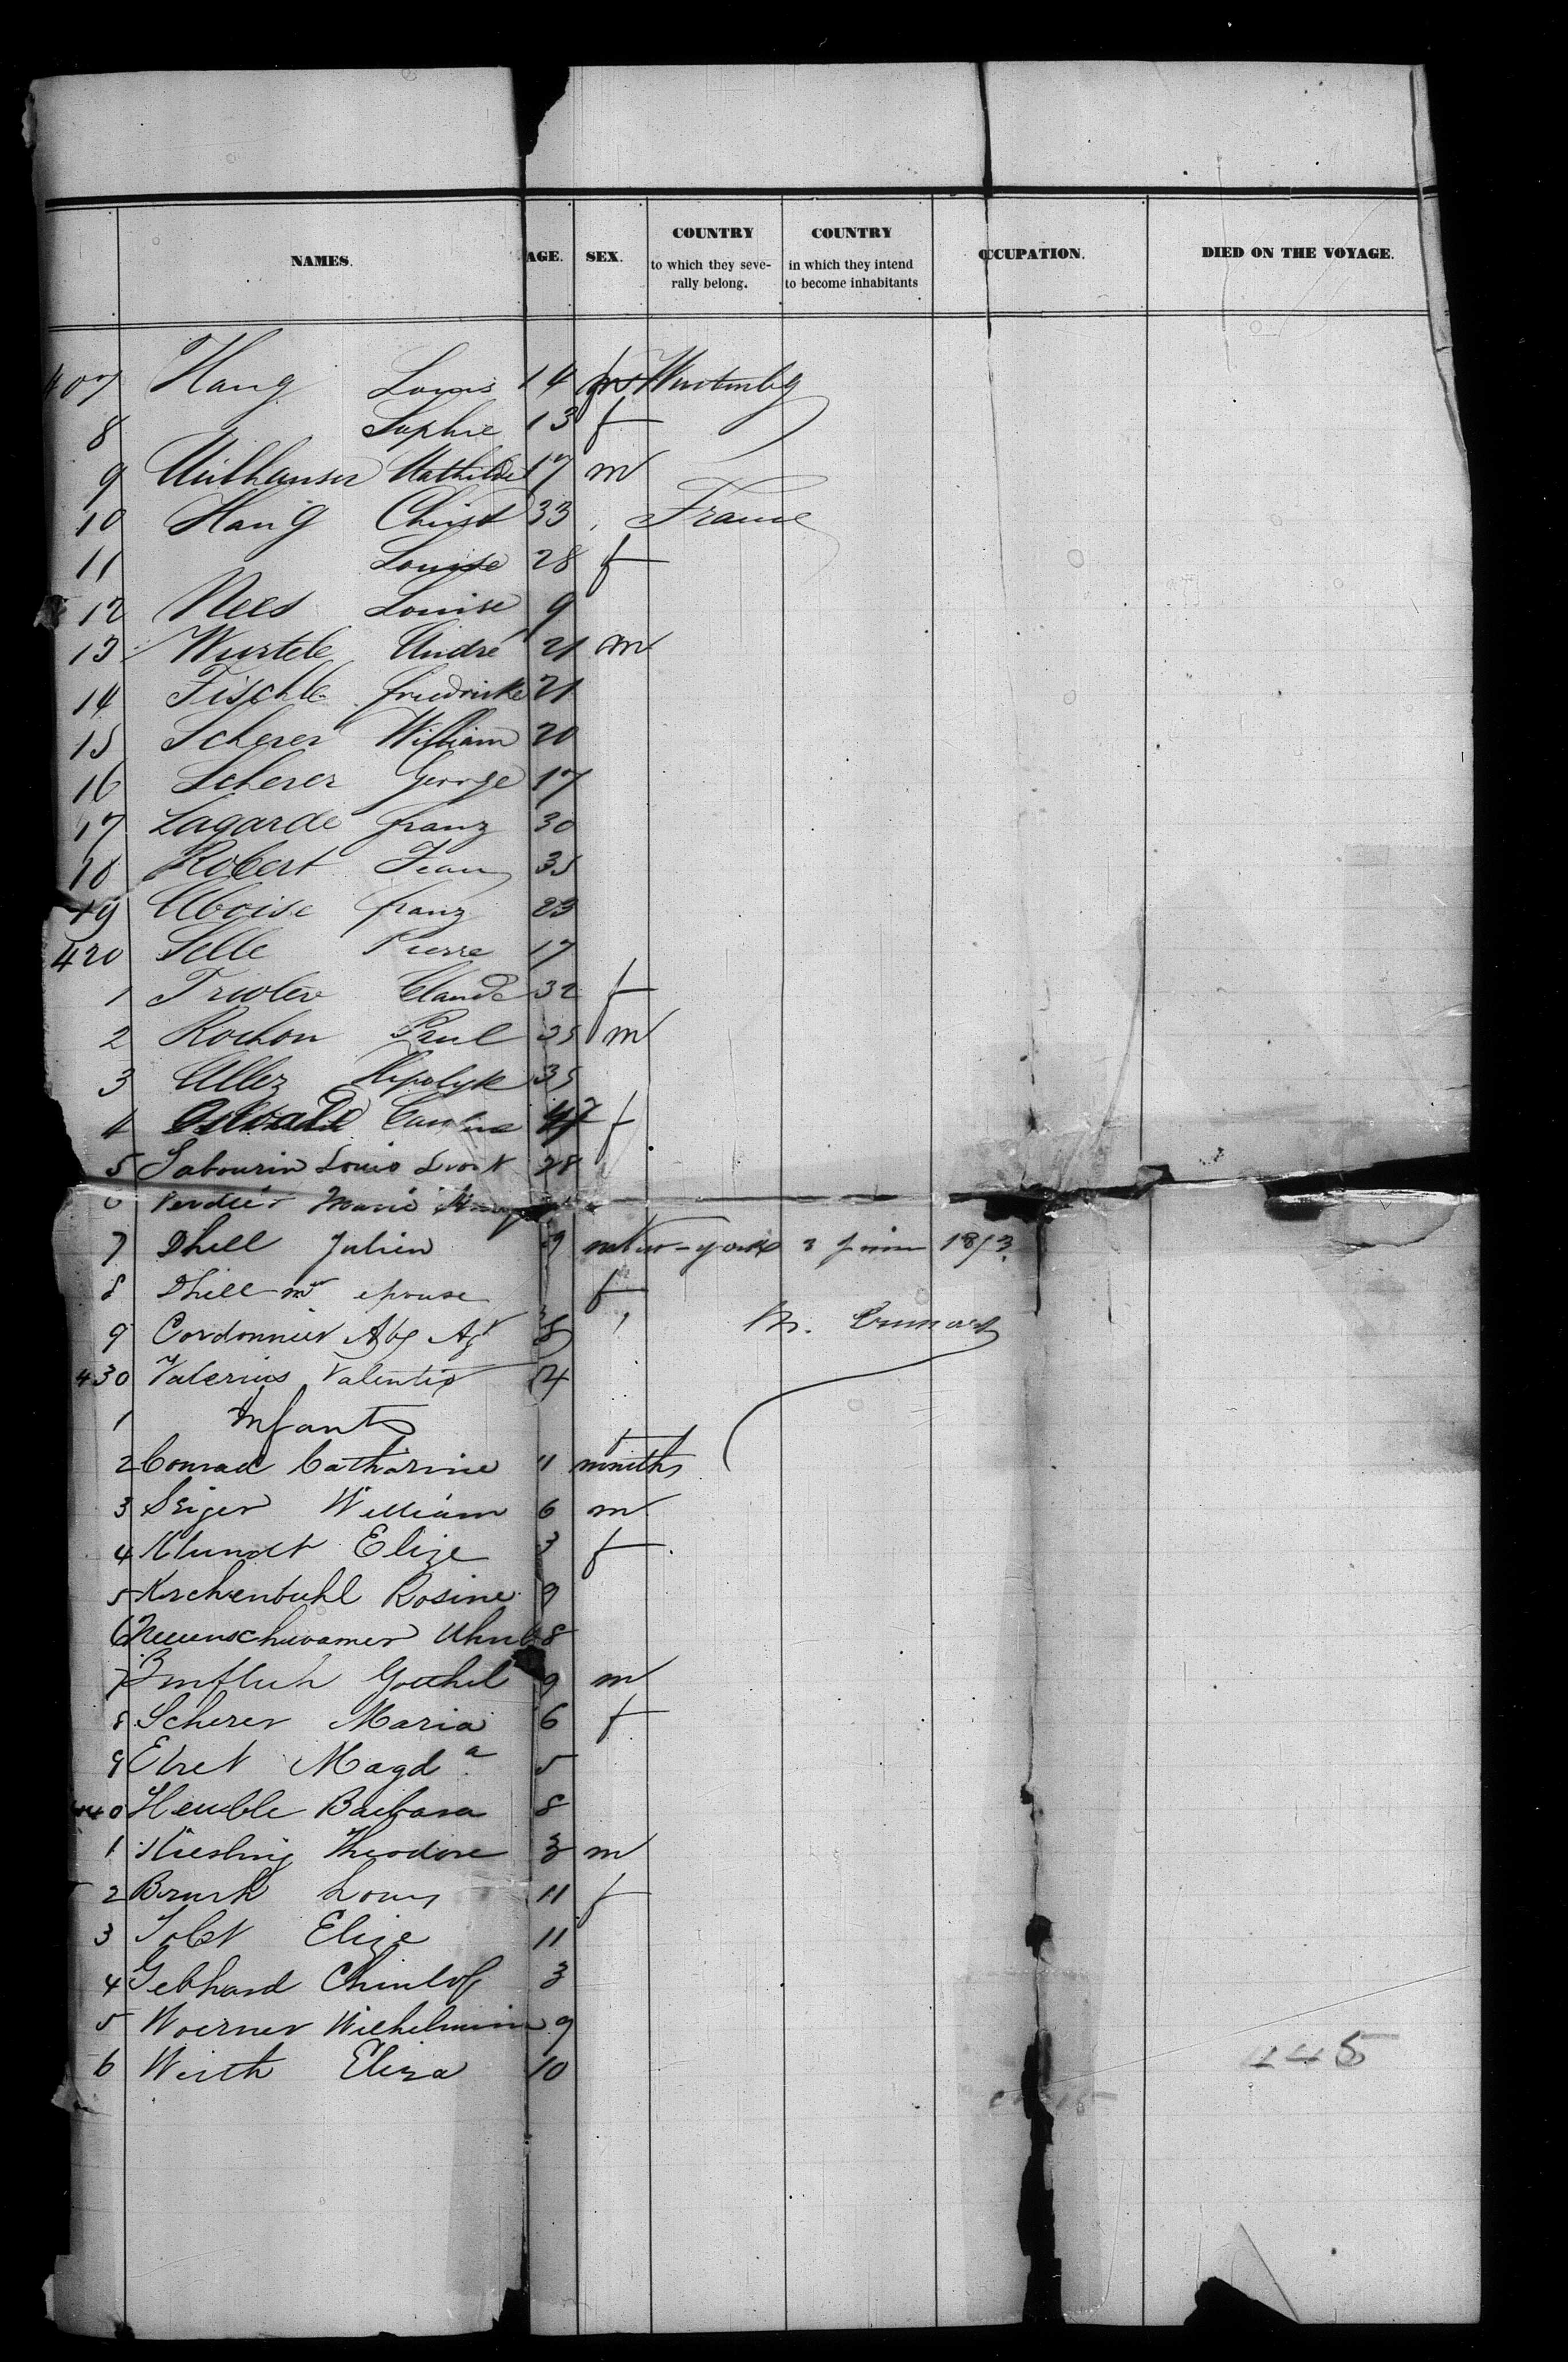 NAMES. AGE. SEX. COUNTRY to which they severally belong. COUNTRY in which they intend to become inhabitants OCCUPATION. DIED ON THE VOYAGE.
407 Haug Louis 14 m Wurtembg
8 Sophie 13 f
9 Mathilde 17 m
10 Haug Christ 33 France
11 Louise 28 f
12 Nees Louise 9
13 Wurtele André 21 m
14 Fischle friedrike 21
15 Scherer William 20
16 Scherer George 17
17 Lagarde franz 30
18 Robert Jean 35
19 franz 23
420 Selle Pierre 17
1 Claude 32 f
2 Rochon Paul 25 m
3 Allez Hipolyte 35
4 Oswald f
5 Sabourin Louis 28
6 Verdier Marie
7 Dhill Julien 9 m New-york 3 juin 1873
8 Dhill epouse f
9 Cordonnier 8
430 Valerius Valentin 4
1 Infants
2 Conrad Catharine 11 months f
3 Seiger William 6 m
4 Klundt Elize 3 f
5 Kirchenbuhl Rosine 9
6 8
7 Gotthel 9 m
8 Scherer Maria 6 f
9 Ehret Magda 5
440 Heuble Barbara 8
1 Kiesling Theodore 3 m
2 Louis 11 f
3 Jobst Elize 11
4 Gebhard 3
5 Woerner Wilhelmin 9
6 Wirth Eliza 10
445